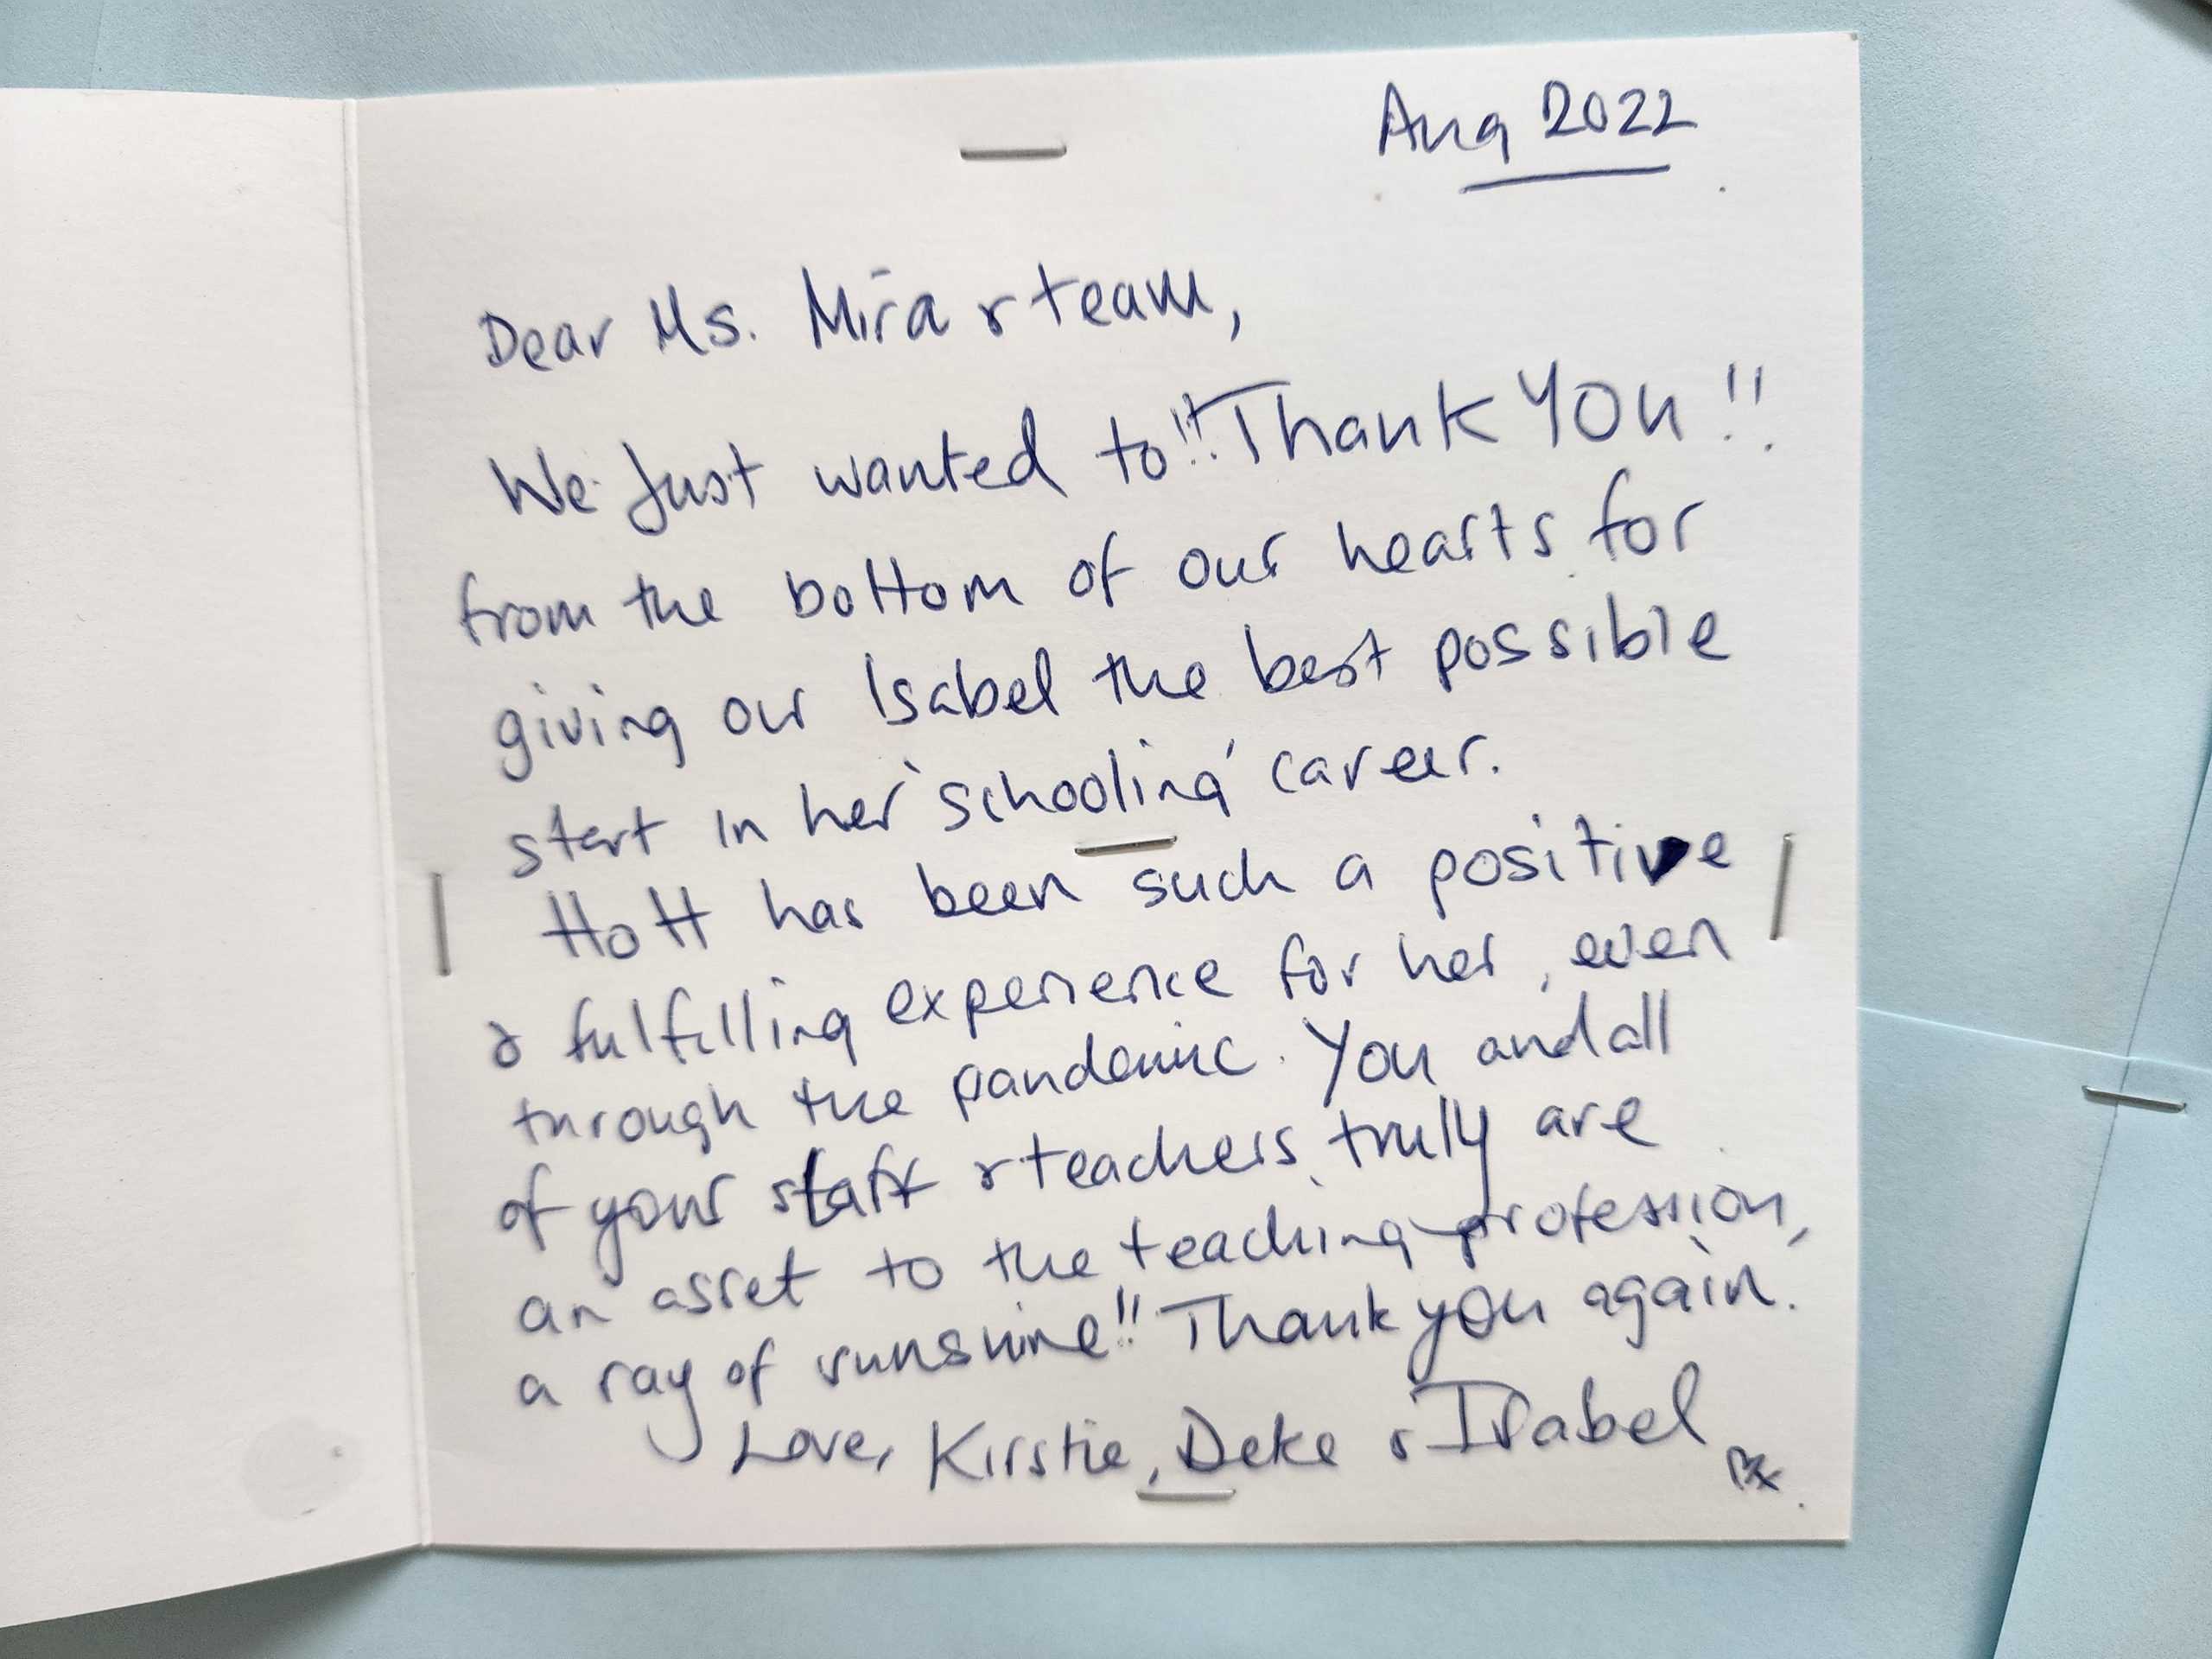 Aug 2022
Dear Ms. Mira & team,
We Just wanted to!! Thank YOU!!
from the bottom of our hearts for
giving our Isabel the best possible
start in her 'schooling' career.
HoH has been such a positive
& fulfilling experience for her, even
through the pandemic. You and all
of your staff & teachers truly are
an asset to the teaching profession,
a ray of sunshine!! Thank you again.
Love, Kirstie, Deke & Isabel